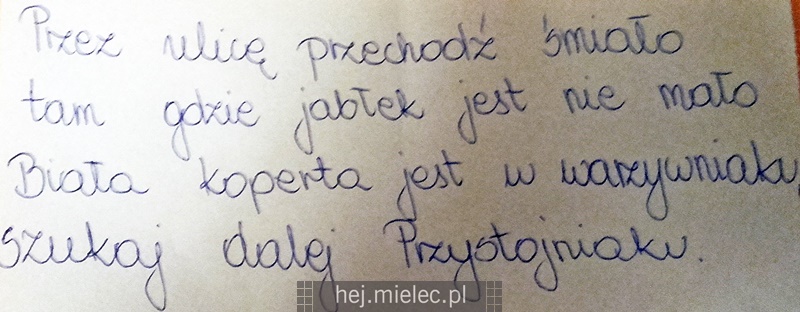 Przez ulicę przechodź śmiało
tam gdzie jabłek jest nie mało
Biała koperta jest w warzywniaku,
szukaj dalej Przystojniaku.
hej.mielec.pl